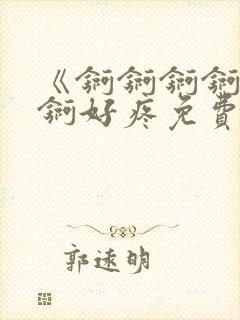 《锕锕锕锕
锕好疼免費
郭遠明